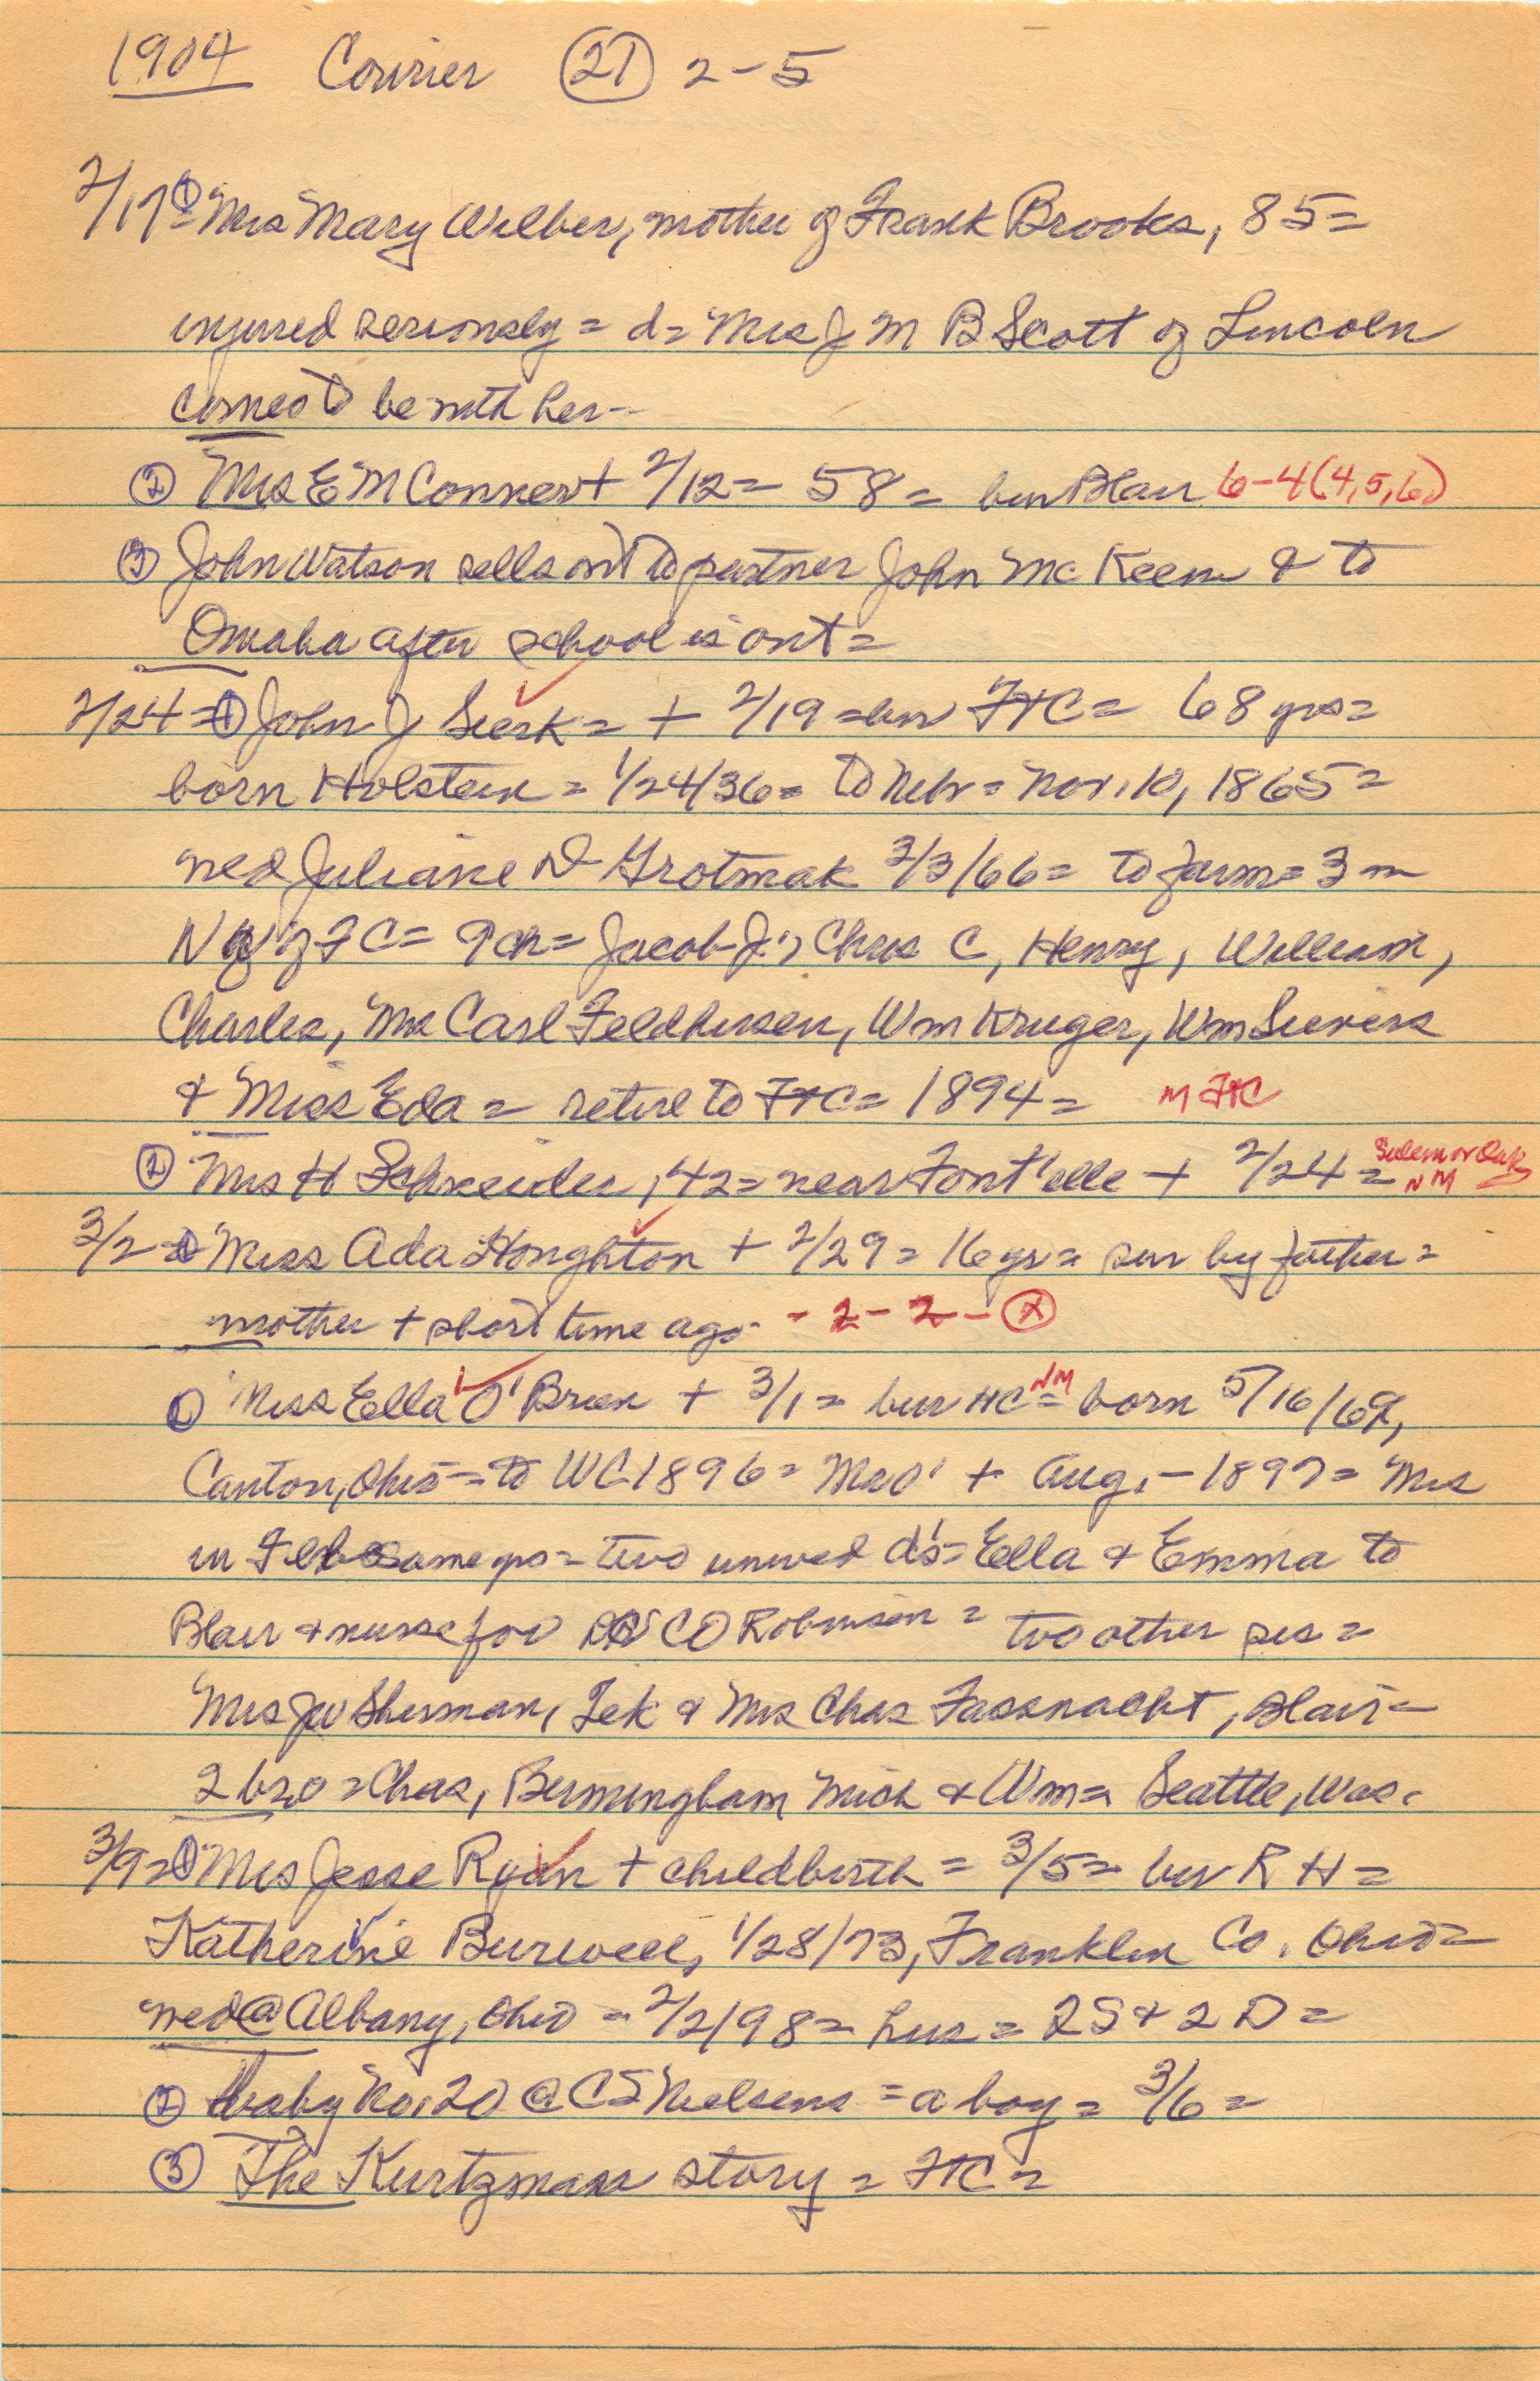 1904 Courier (21) 2-5
2/17 = ① Mrs Mary Wilber, mother of Frank Brooks, 85 =
injured seriously = d = Mrs J M B Scott of Lincoln
comes to be with her --
② Mrs E M Conner + 2/12 = 58 = bur Blair 6-4 (4,5,6)
③ John Watson sells out to partner John McKeen & to
Omaha after school is out =
2/24 = ① John J Sierk = + 2/19 = bur FtC = 68 yrs =
born Holstein = 1/24/36 = to Nebr = Nov. 10, 1865 =
wed Juliane D Grotmak 3/3/66 = to farm = 3 m
NW of FC = 9 ch = Jacob J., Chris C, Henry, William,
Charles, Mrs Carl Feldhusen, Wm Kruger, Wm Sievers
& Miss Eda = retire to FtC = 1894 = M FtC
② Mrs H Schneider, 42 = near Font'elle + 2/24 = Salem or Oak NM
3/2 = ① Miss Ada Houghton + 2/29 = 16 yrs = sur by father =
mother + short time ago - - 2 - 2 - (X)
① Miss Ella O'Brien + 3/1 = bur HC = NM born 5/16/69,
Canton, Ohio = to WC 1896 = Mr O' + Aug. - 1897 = Mrs
in Feb same yr = two unwed d's = Ella & Emma to
Blair & nurse for CO Robinson = two other sis =
Mrs JW Sherman, Tek & Mrs Chas Fassnacht, Blair =
2 bro = Chas, Birmingham Mich & Wm = Seattle, Was.
3/9 = ① Mrs Jesse Ryan + childbirth = 3/5 = bur R H =
Katherine Burwell, 1/28/73, Franklin Co. Ohio =
wed @ Albany, Ohio = 2/2/98 = hus = 2S & 2 D =
② baby No. 20 @ CS Nielsens = a boy = 3/6 =
③ The Kurtzman story = FtC =